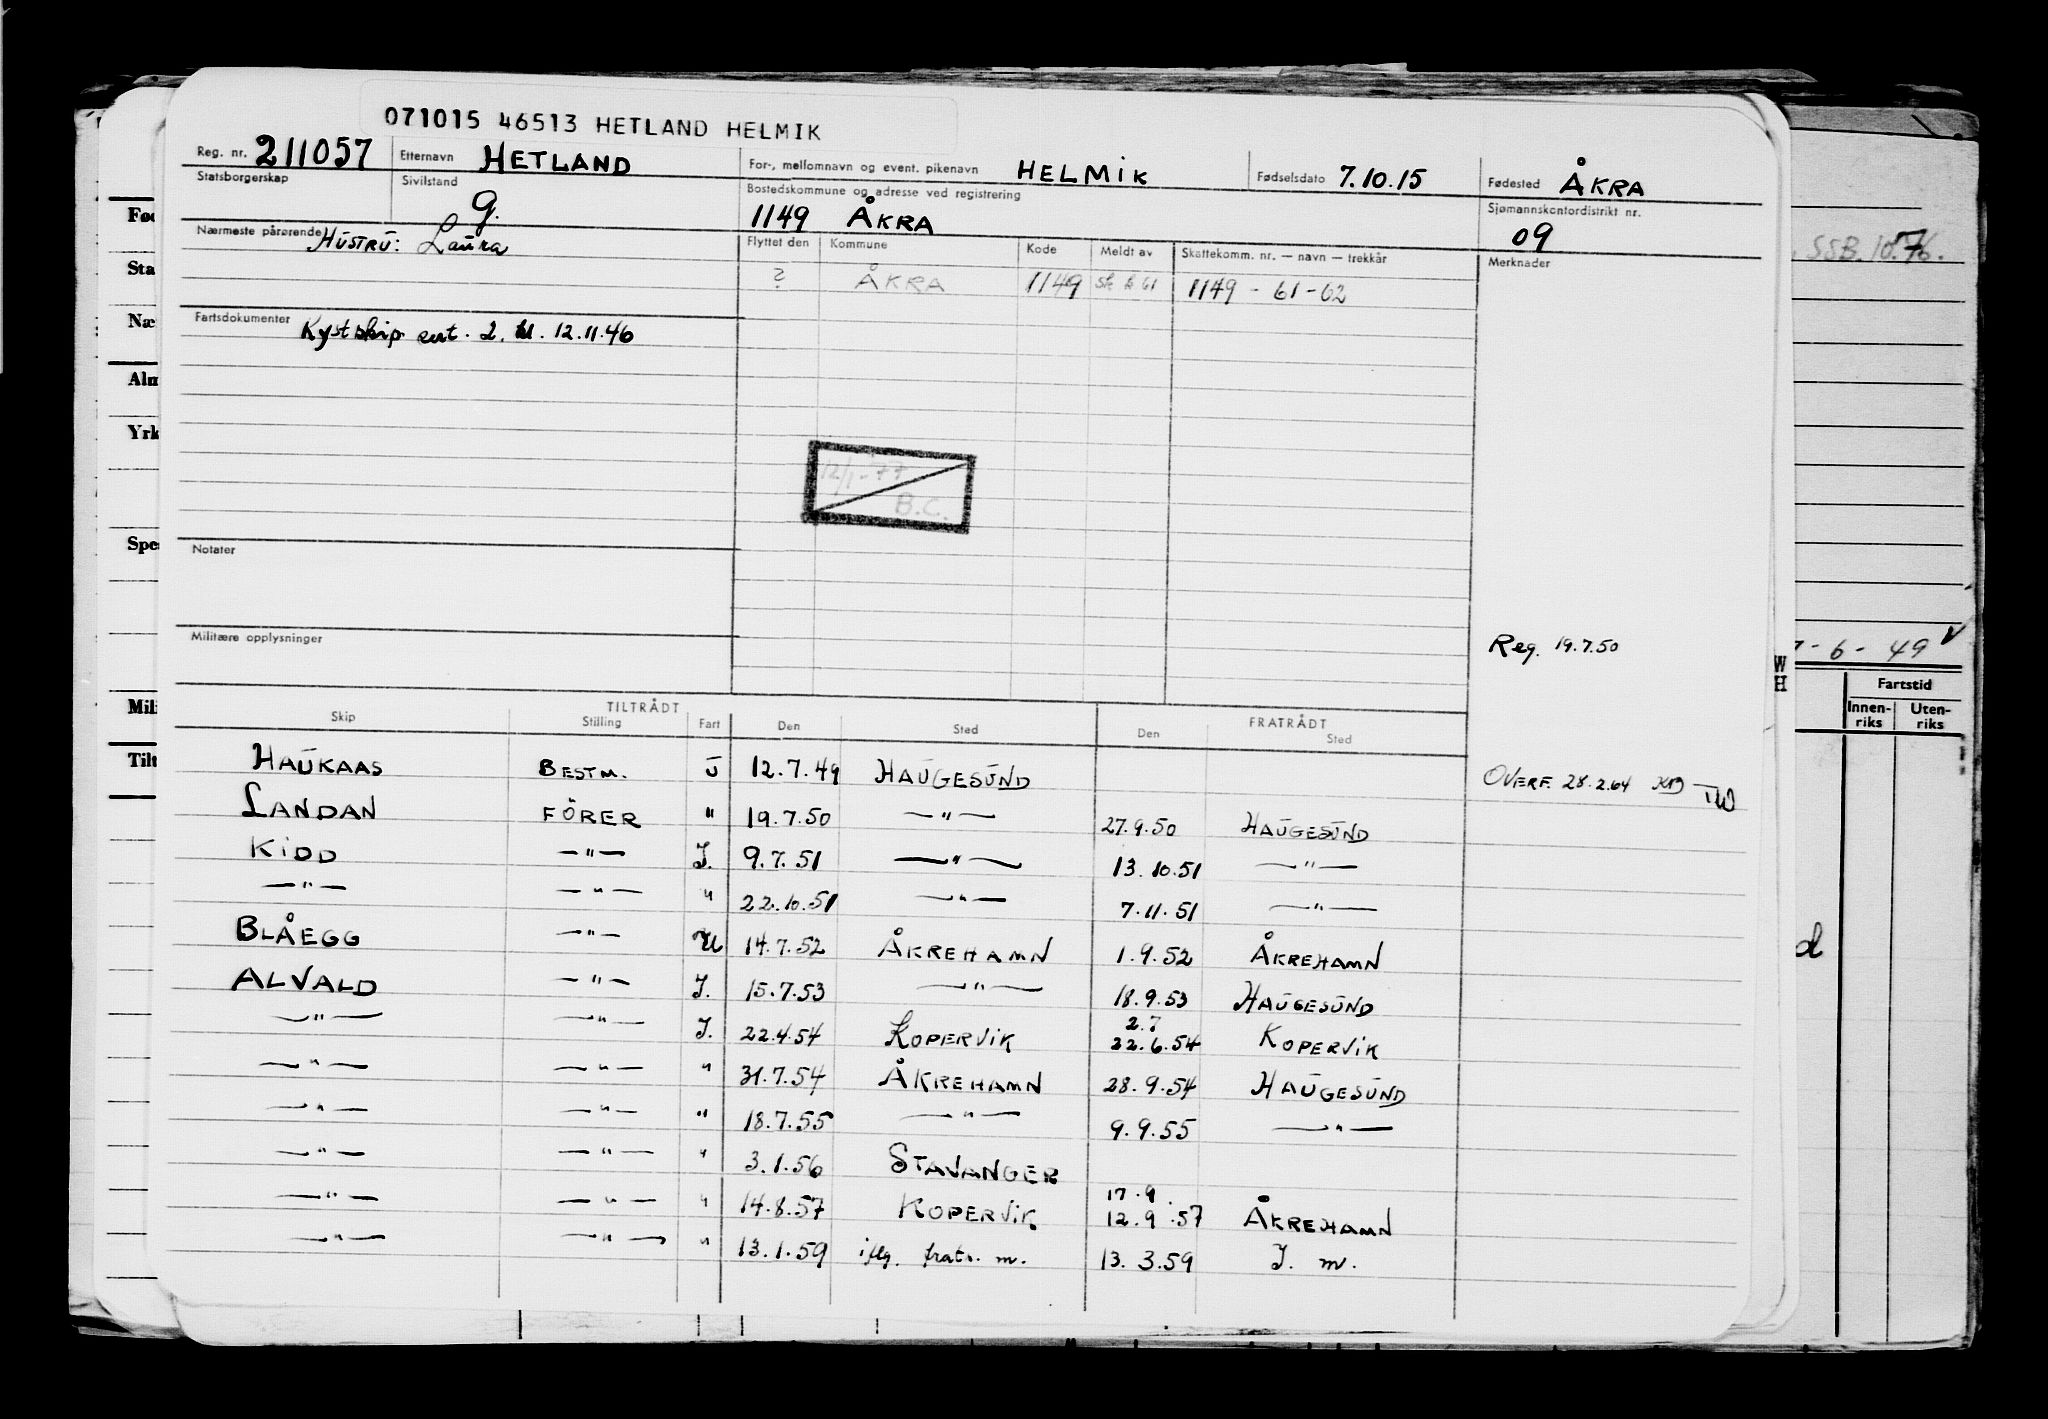 071015 46513 HETLAND HELMIK
Reg. nr. 211057 Etternavn HETLAND For-, mellomnavn og event. pikenavn HELMIK Fødselsdato 7.10.15 Fødested ÅKRA
Statsborgerskap Sivilstand g. Bostedskommune og adresse ved registrering 1149 ÅKRA Sjømannskontordistrikt nr. 09
Nærmeste pårørende HUSTRU: Laura Flyttet den Kommune Kode Meldt av Skattekomm. nr. — navn — trekkår Merknader
? ÅKRA 1149 61 1149 - 61-62
Fartsdokumenter Kystskip. sert. 2. kl. 12.11.46
12/1-77
B.C.
Notater
Militære opplysninger
Reg. 19.7.50
TILTRÅDT FRATRÅDT
Skip Stilling Fart Den Sted Den Sted
HAUKAAS BESTM. U 12.7.49 HAUGESUND
OVERF. 28.2.64 TW
LANDAN FÖRER " 19.7.50 —"— 27.9.50 HAUGESUND
KIDD —"— I. 9.7.51 —"— 13.10.51 —"—
—"— —"— " 22.10.51 —"— 7.11.51 —"—
BLÅEGG —"— U 14.7.52 ÅKREHAMN 1.9.52 ÅKREHAMN
ALVALD —"— I. 15.7.53 —"— 18.9.53 HAUGESUND
2.7
—"— —"— I. 22.4.54 KOPERVIK 22.6.54 KOPERVIK
—"— —"— " 31.7.54 ÅKREHAMN 28.9.54 HAUGESUND
—"— —"— " 18.7.55 —"— 9.9.55 —"—
—"— —"— " 3.1.56 STAVANGER
17.9.
—"— —"— " 14.8.57 KOPERVIK 12.9.57 ÅKREHAMN
—"— —"— " 13.1.59 iflg. fratr. m. 13.3.59 I. m.
Fød
Sta
Næ
Alm
Yrk
Spe
Mili
Tilt
SSB. 10.76.
7-6-49 V
W
H
Fartstid
Innen-
riks
Uten-
riks
d